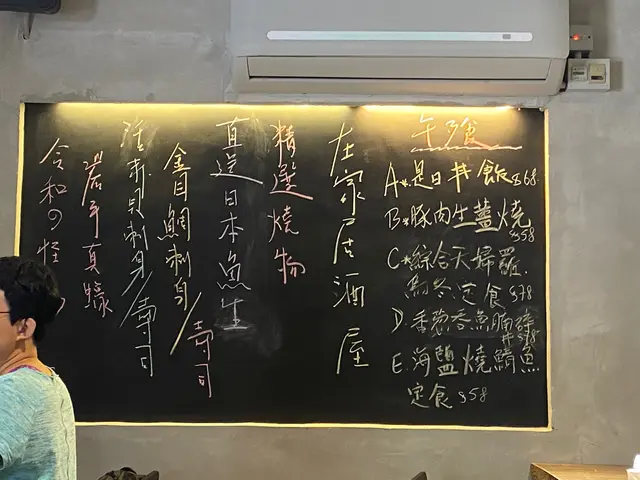 午餐
A*.是日丼飯 $68.
B*豚肉生薑燒 $58
C*綜合天婦羅.
烏冬定食 $78
D.香蔥吞魚腩 丼 $98
E.海鹽燒鯖魚
定食 $58
在家居酒屋
精選燒物
直送日本魚生
金目鯛刺身/壽司
赤貝刺身/壽司
岩手真蠔
令和の怪